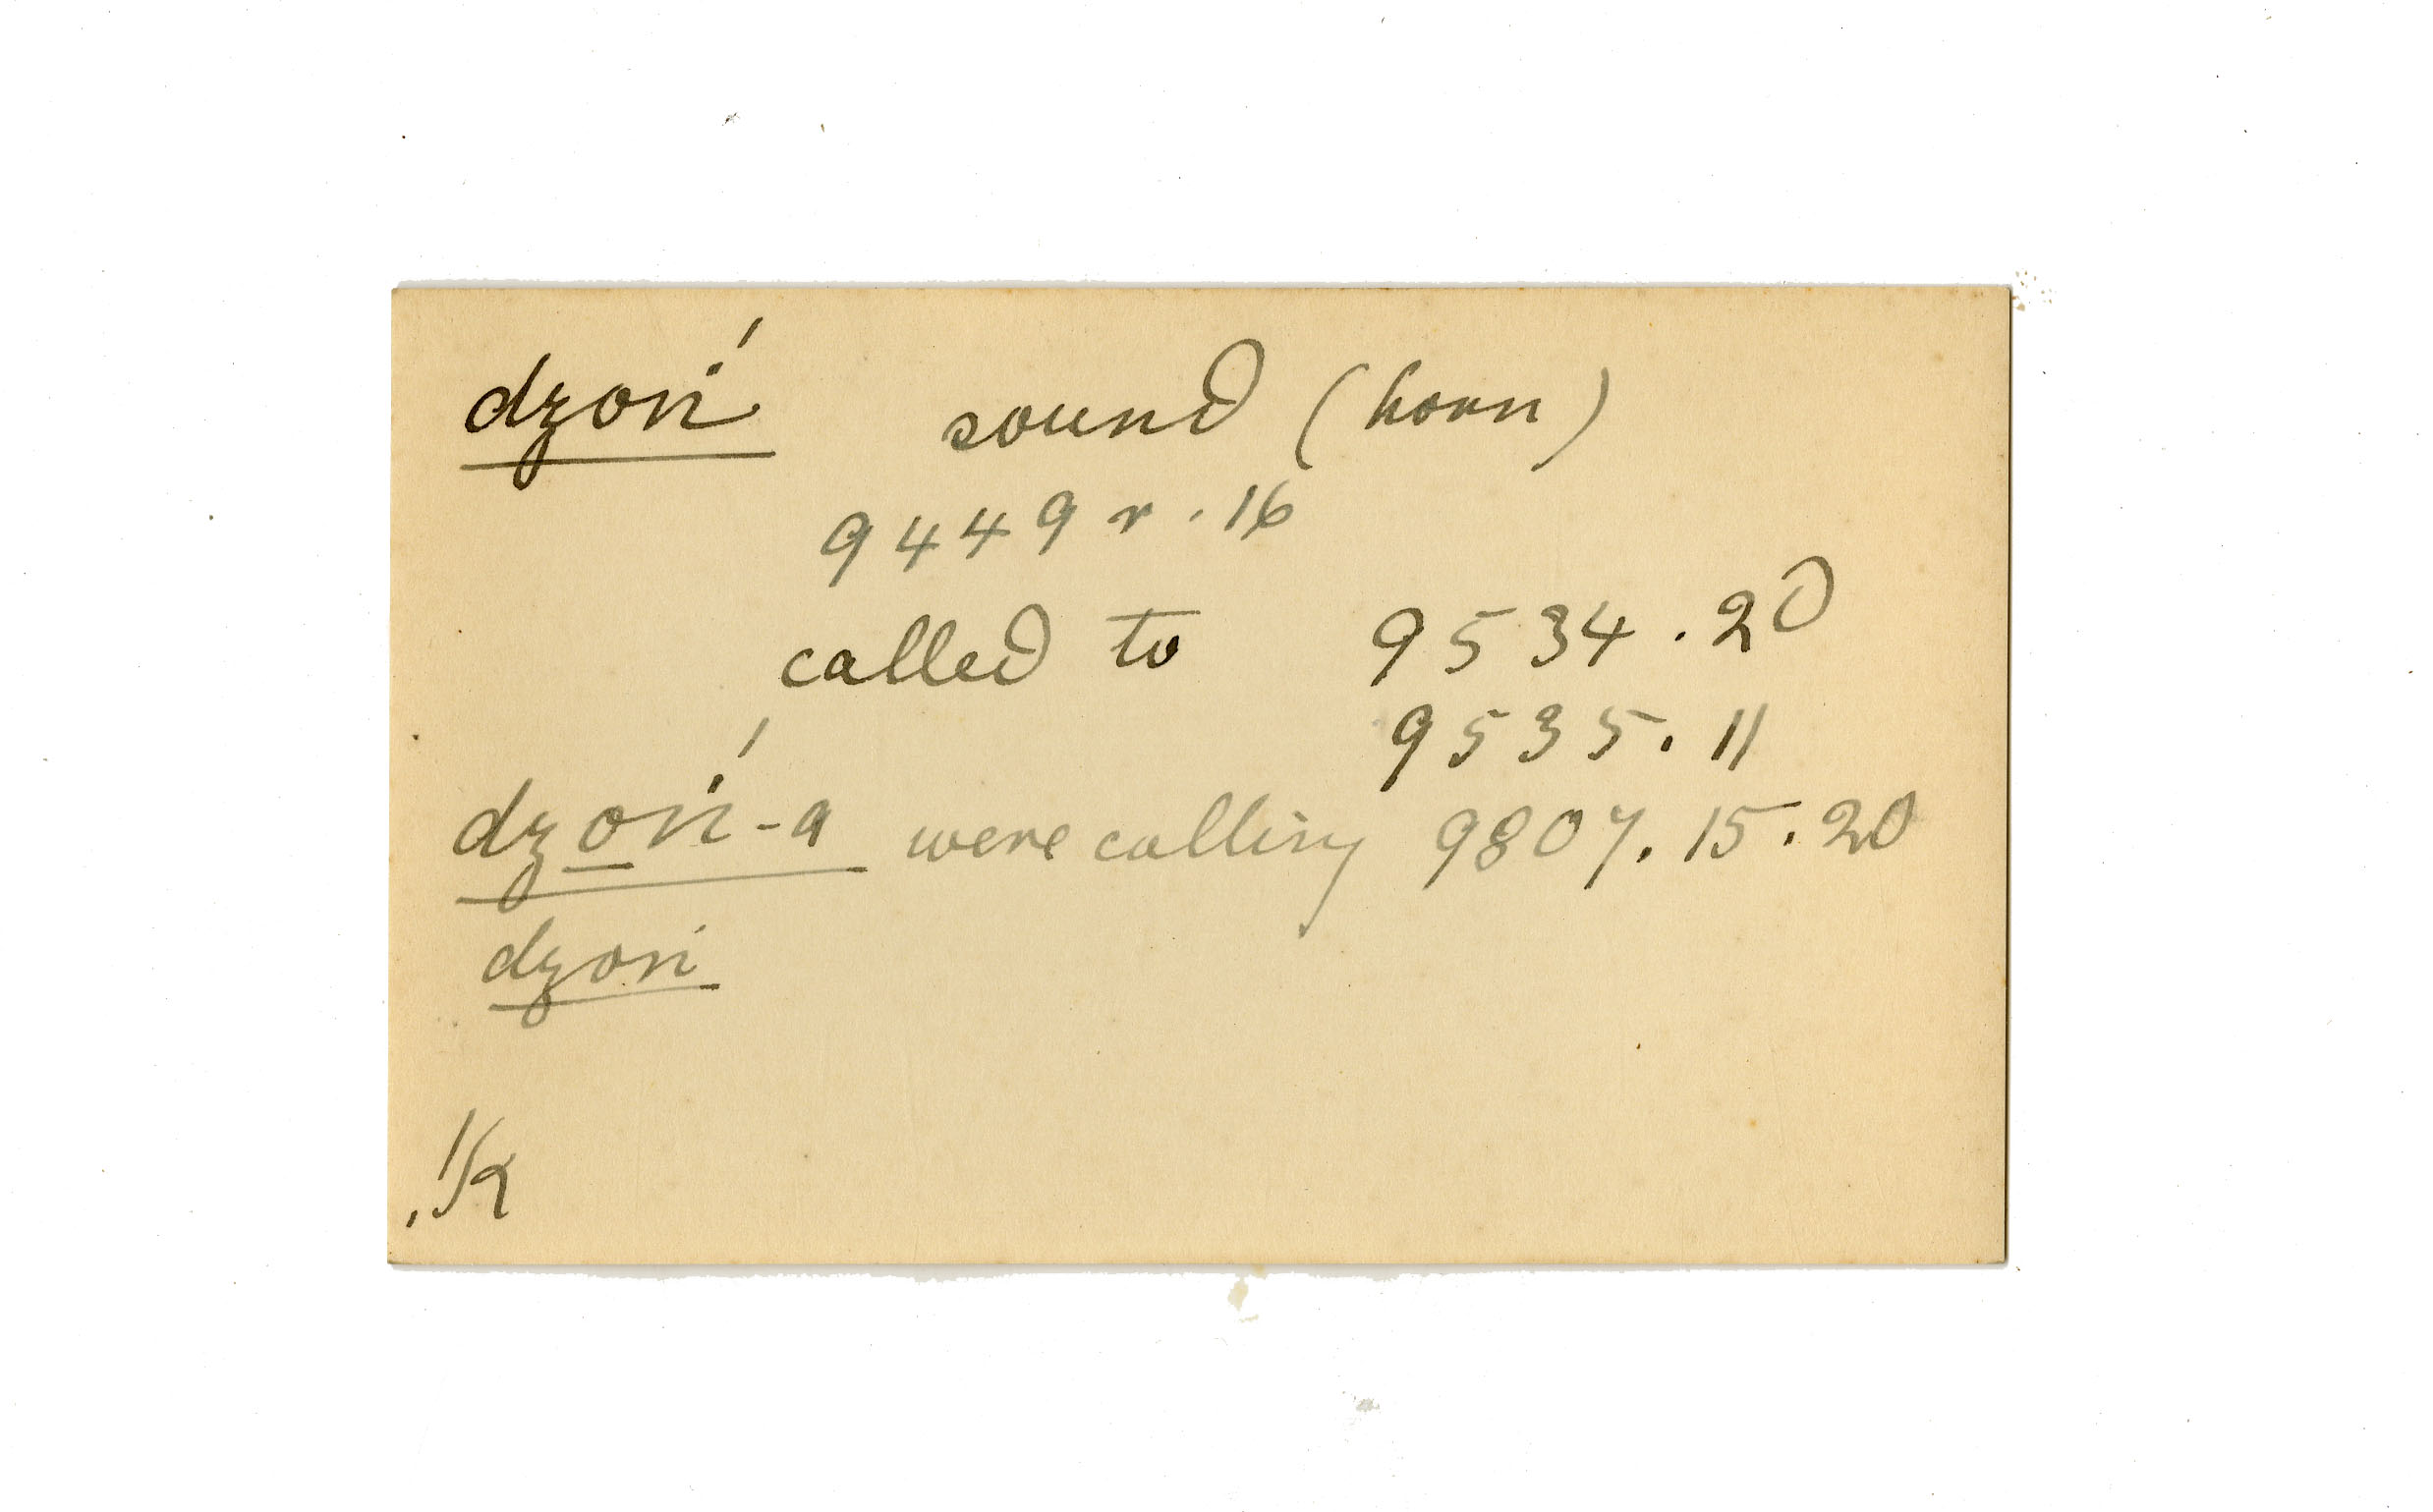 dzoṅ́ sound (horn)
9449 r. 16
called to 9534.20
9535.11
dzo̲ṅ́-a were calling 9807.15.20
dzoṅ
/K